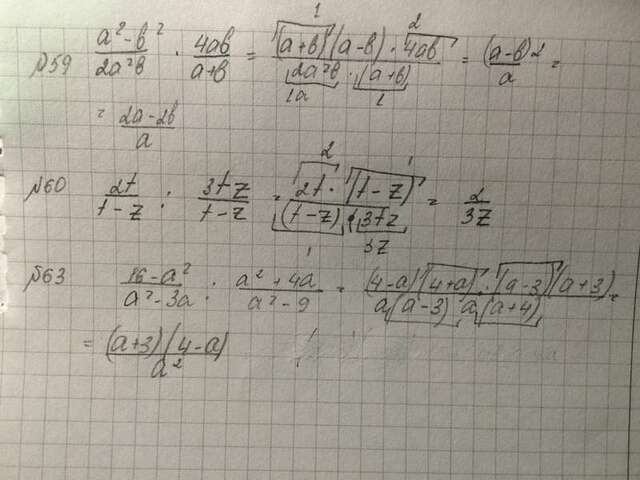 №59 (a²-b²)/(2a²b) · (4ab)/(a+b) = ((a+b)(a-b)·4ab)/(2a²b·(a+b)) = ((a-b)2)/a =
= (2a-2b)/a
№60 (2t)/(t-z) : (3tz)/(t-z) = (2t·(t-z))/((t-z)·3tz) = 2/(3z)
№63 (16-a²)/(a²-3a) : (a²+4a)/(a²-9) = ((4-a)(4+a)·(a-3)(a+3))/(a(a-3)·a(a+4)) =
= ((a+3)(4-a))/a²